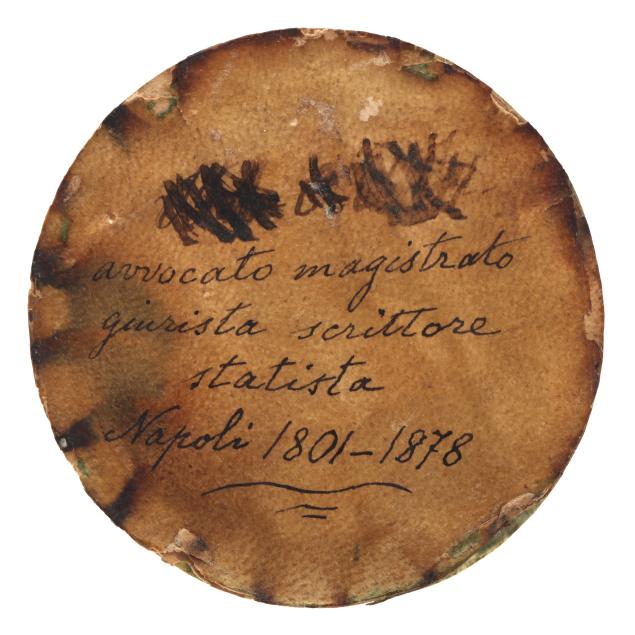 avvocato magistrato
giurista scrittore
statista
Napoli 1801-1878